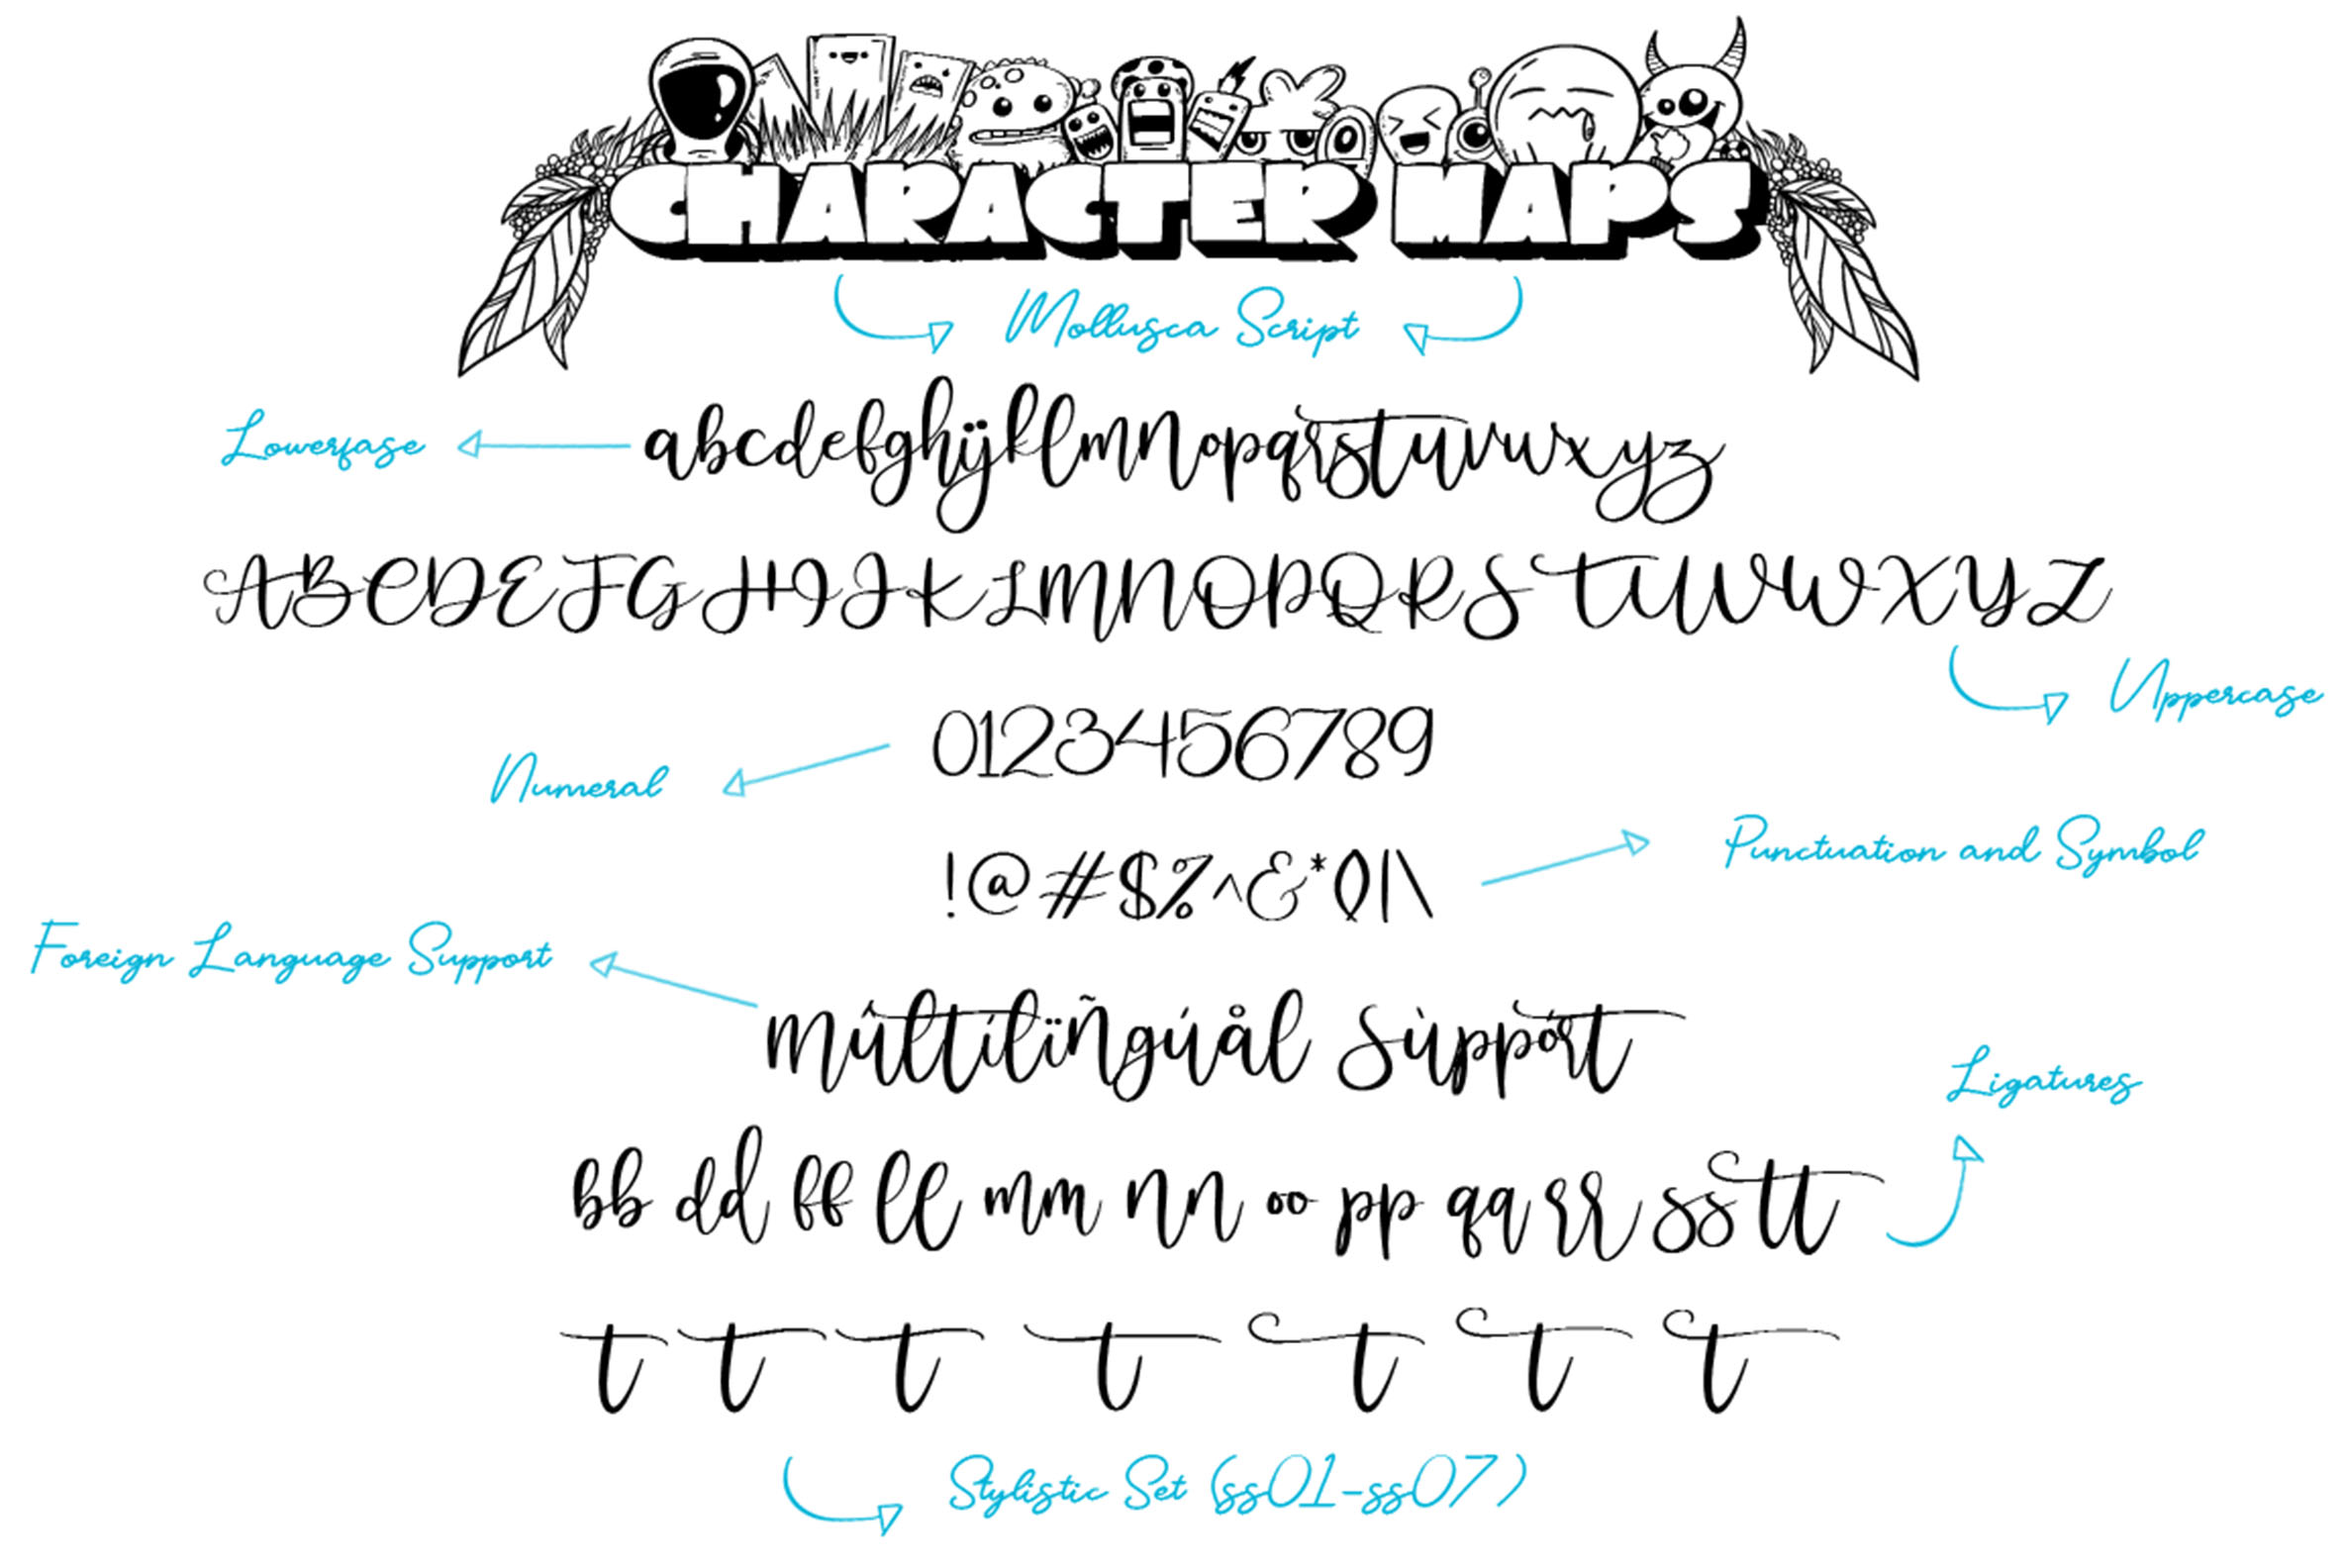 CHARACTER MAPS
Mollusca Script
Lowerfase
abcdefghijklmnopqrstuvwxyz
ABCDEFGHIJKLMNOPQRSTUVWXYZ
Uppercase
0123456789
Numeral
!@#$%^&*()|\
Punctuation and Symbol
Foreign Language Support
Mûltílïñgúål Sùppórt
Ligatures
bb dd ff ll mm nn oo pp qq rr ss tt
t t t t t t t
Stylistic Set (ss01-ss07)